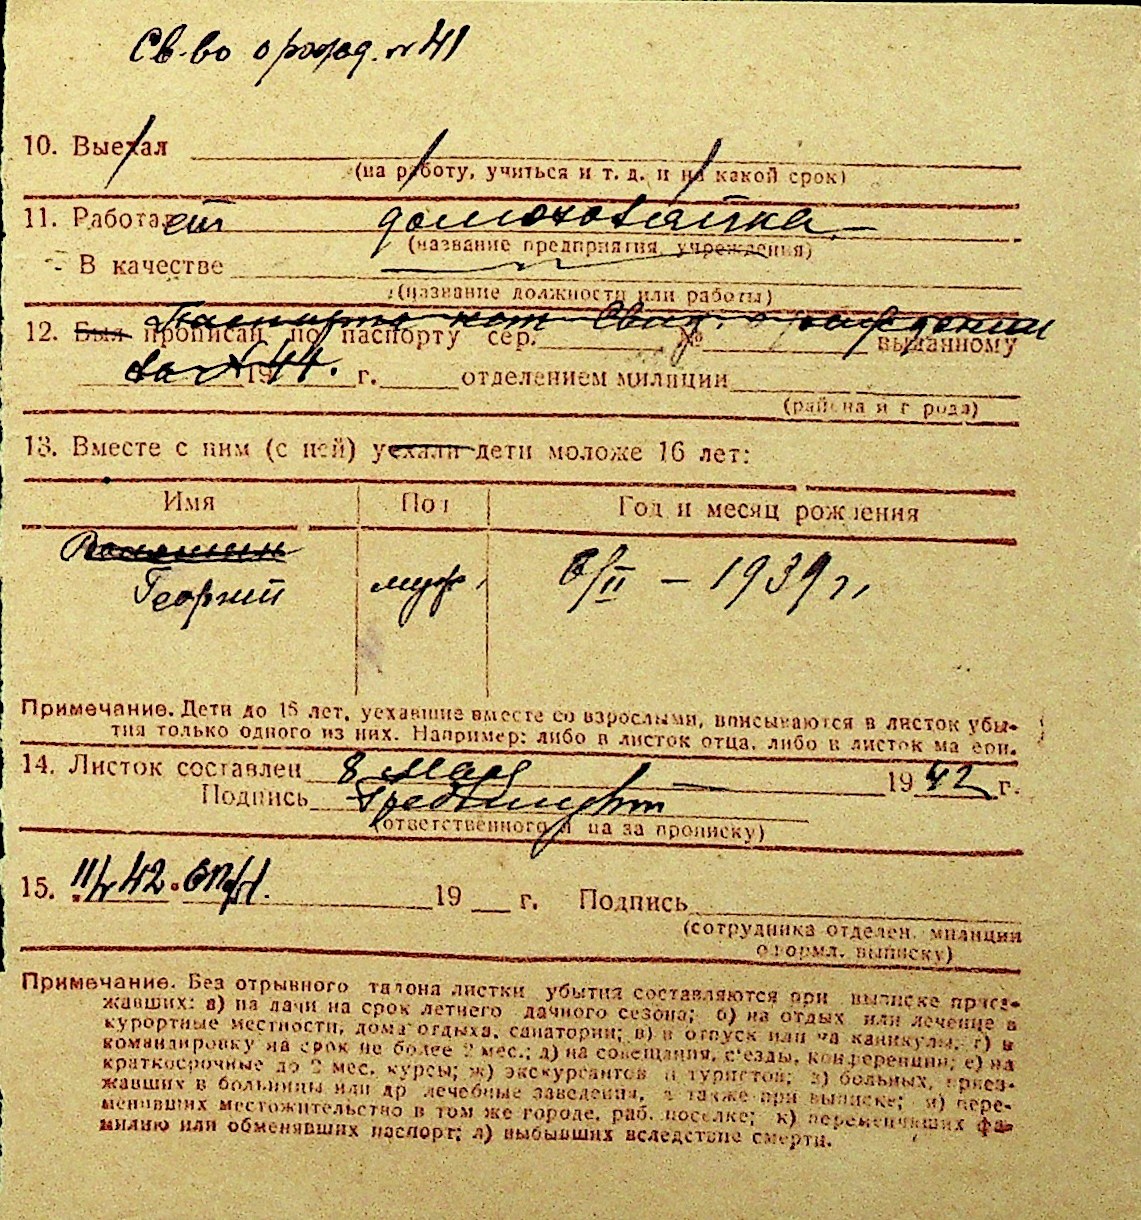 Св-во о рожд. № 41
10. Выехал
(на работу, учиться и т. д. и на какой срок)
11. Работает домохозяйка
(название предприятия, учреждения)
В качестве
(название должности или работы)
Паспорта нет Свид. о рождении
12. Был прописан по паспорту сер. № выданному
19 44. г. отделением милиции
(района и города)
13. Вместе с ним (с ней) уехали дети моложе 16 лет:
Имя Пол Год и месяц рождения
Георгий муж. 8/II – 1939 г.
Примечание. Дети до 16 лет, уехавшие вместе со взрослыми, вписываются в листок убы-
тия только одного из них. Например: либо в листок отца, либо в листок матери.
14. Листок составлен 8 мая 19 42 г.
Подпись
(ответственного лица за прописку)
15. 11/V 42. 19 г. Подпись
(сотрудника отделен. милиции
оформл. выписку)
Примечание. Без отрывного талона листки убытия составляются при выписке приез-
жавших: а) на дачи на срок летнего дачного сезона; б) на отдых или лечение в
курортные местности, дома отдыха, санатории; в) в отпуск или на каникулы; г) в
командировку на срок не более 2 мес.; д) на совещания, съезды, конференции; е) на
краткосрочные до 2 мес. курсы; ж) экскурсантов и туристов; з) больных, приез-
жавших в больницы или др лечебные заведения, а также при выписке; и) пере-
менивших местожительство в том же городе, раб. поселке; к) переменивших фа-
милию или обменявших паспорт; л) выбывших вследствие смерти.